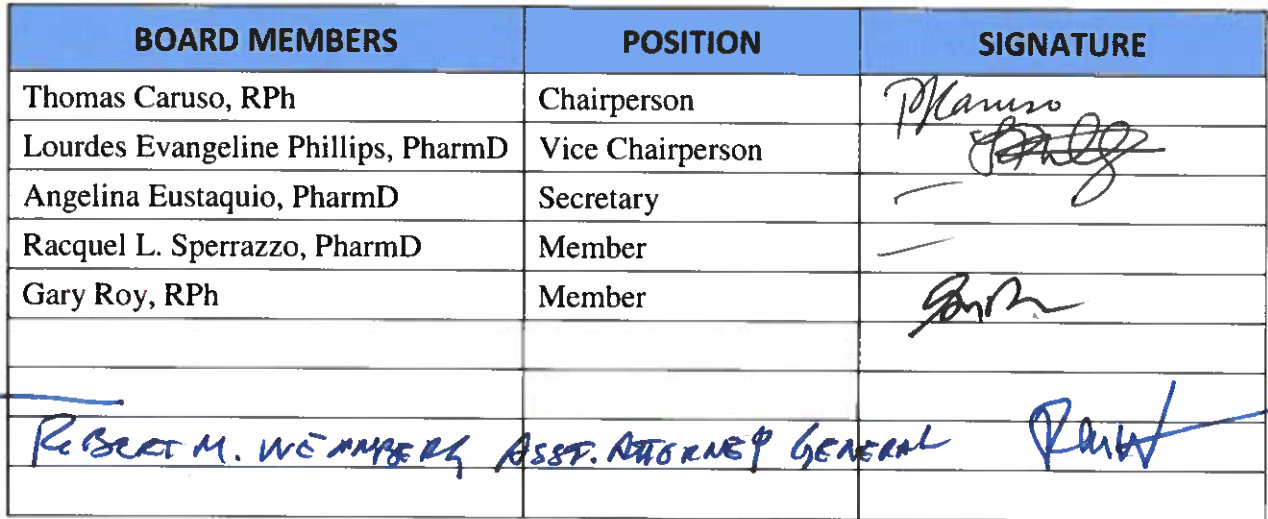 BOARD MEMBERS POSITION SIGNATURE
Thomas Caruso, RPh Chairperson
Lourdes Evangeline Phillips, PharmD Vice Chairperson
Angelina Eustaquio, PharmD Secretary —
Racquel L. Sperrazzo, PharmD Member —
Gary Roy, RPh Member
ROBERT M. WEINBERG ASST. ATTORNEY GENERAL